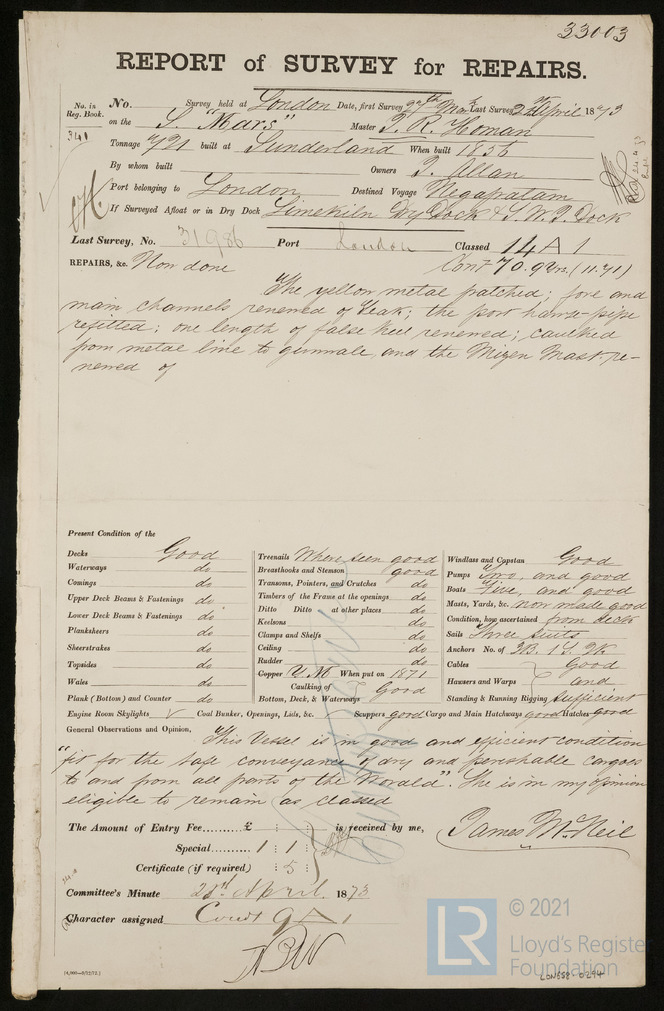 33003
REPORT of SURVEY for REPAIRS.
No. in Reg. Book. No. Survey held at London Date, first Survey 27th Mar Last Survey 2d April 1873
341 on the S. "Mars" Master T. R. Homan
Tonnage 721 built at Sunderland When built 1856
By whom built Owners T. Allan
Port belonging to London Destined Voyage Negapatam
If Surveyed Afloat or in Dry Dock Limekiln Dry Dock & S. W. I. Dock
Last Survey, No. 31986 Port London Classed 14 A 1
REPAIRS, &c. Now done Cont 70.9Yrs. (11.71)
The yellow metal patched; fore and
main channels renewed of Teak; the port hawse-pipe
refitted; one length of false keel renewed; caulked
from metal line to gunnale, and the Mizen Mast re-
newed of
Present Condition of the
Decks Good
Waterways do
Comings do
Upper Deck Beams & Fastenings do
Lower Deck Beams & Fastenings do
Planksheers do
Sheerstrakes do
Topsides do
Wales do
Plank (Bottom) and Counter do
Treenails Where seen good
Breasthooks and Stemson good
Transoms, Pointers, and Crutches do
Timbers of the Frame at the openings do
Ditto Ditto at other places do
Keelsons do
Clamps and Shelfs do
Ceiling do
Rudder do
Copper Y.M. When put on 1871
Caulking of Bottom, Deck, & Waterways Good
Windlass and Capstan Good
Pumps Two, and good
Boats Five, and good
Masts, Yards, &c. now made good
Condition, how ascertained from deck
Sails Three suits
Anchors No. of 3B. 1S. 2K
Cables Good
Hawsers and Warps and
Standing & Running Rigging sufficient
Engine Room Skylights Coal Bunker, Openings, Lids, &c. Scuppers good Cargo and Main Hatchways good Hatches good
General Observations and Opinion, This Vessel is in good and efficient condition
"fit for the safe conveyance of dry and perishable cargoes
to and from all parts of the World". She is in my opinion
eligible to remain as classed
The Amount of Entry Fee......... £ : : is received by me, James McNeil
Special......... 1 : 1 :
Certificate (if required) : 5 :
Committee's Minute 22nd April. 1873
Character assigned Contd 9 A 1
[4,000—9/12/72.]
© 2021
LR Lloyd's Register
Foundation
LON558-0294